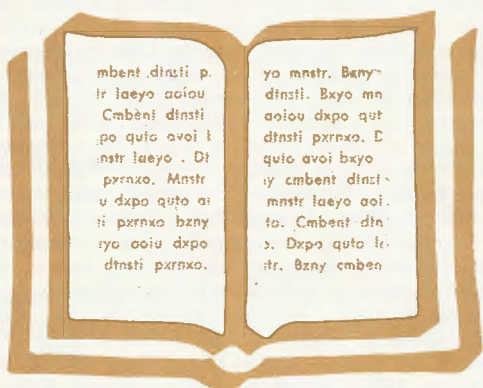 mbent dtnsti p.
tr laeyo aoiou
Cmbent dtnsti
po quto avoi
nstr laeyo . Dt
pxrnxo. Mnstr
u dxpo quto
ti pxrnxo bzny
yo aoiu dxpo
dtnsti pxrnxo.
yo mnstr. Bzny
dtnsti. Bxyo mn
aoiou dxpo qut
dtnsti pxrnxo. D
quto avoi bxyo
y cmbent dtnst
mnstr laeyo aoi
to. Cmbent dtn
Dxpo quto
str. Bzny cmben